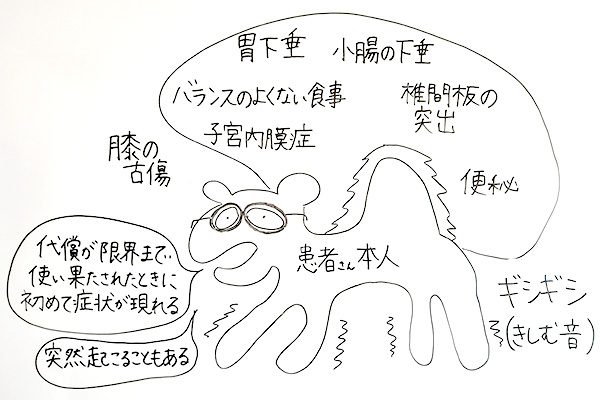 胃下垂
小腸の下垂
バランスのよくない食事
椎間板の
突出
子宮内膜症
膝の
古傷
便秘
代償が限界まで
使い果たされたときに
初めて症状が現れる
患者さん本人
ギシギシ
(きしむ音)
突然起こることもある